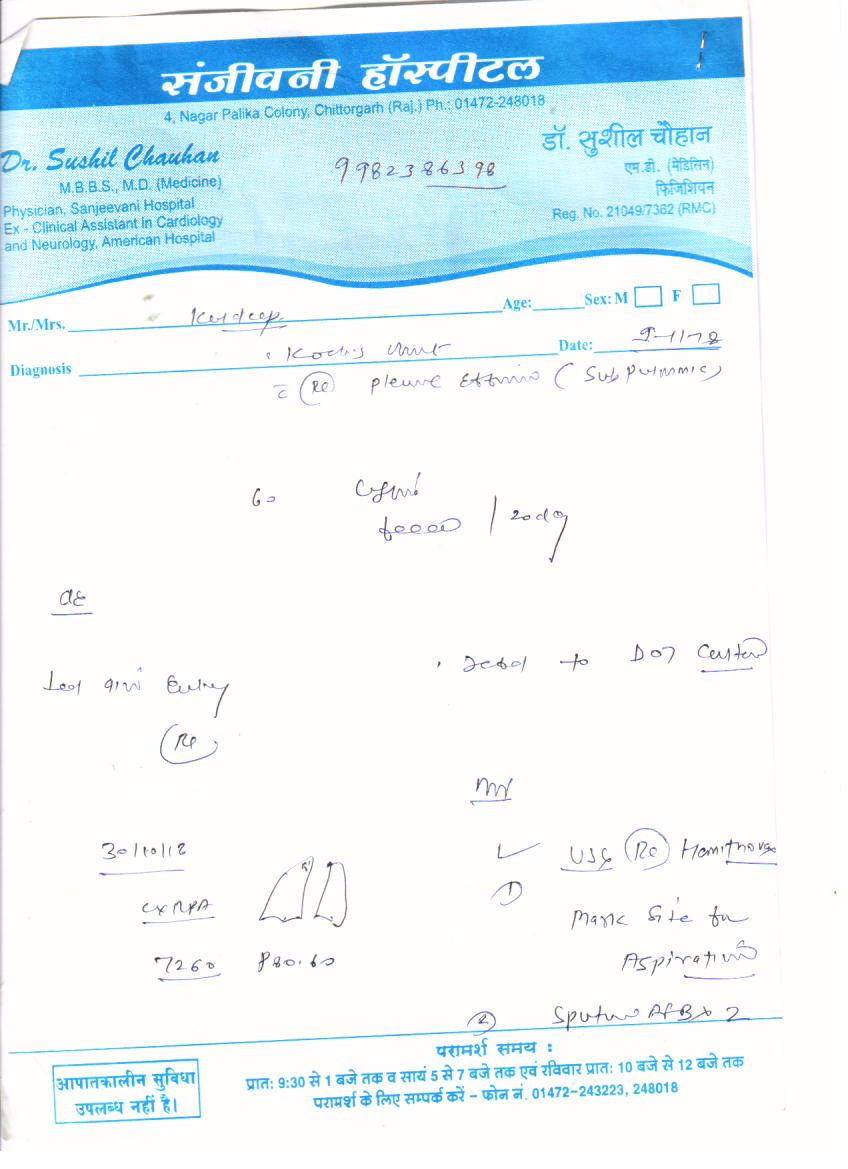 संजीवनी हॉस्पीटल
4, Nagar Palika Colony, Chittorgarh (Raj.) Ph.: 01472-248018
Dr. Sushil Chauhan
M.B.B.S., M.D. (Medicine)
Physician, Sanjeevani Hospital
Ex - Clinical Assistant in Cardiology
and Neurology, American Hospital
9982386398
डॉ. सुशील चौहान
एम.डी. (मेडिसिन)
फिजिशियन
Reg. No. 21049/7362 (RMC)
Mr./Mrs. Kuldeep Age: Sex: M F
Diagnosis Koch's Date:
Re (Subpulmonic)
20 day
to DOT Center
Entry
Re
30/10/12
CXRPA
7260
USG Re Hemithorax
1
Mark Site for
Aspiration
2 Sputum AFB x 2
परामर्श समय :
आपातकालीन सुविधा
उपलब्ध नहीं है।
प्रातः 9:30 से 1 बजे तक व सायं 5 से 7 बजे तक एवं रविवार प्रातः 10 बजे से 12 बजे तक
परामर्श के लिए सम्पर्क करें – फोन नं. 01472-243223, 248018